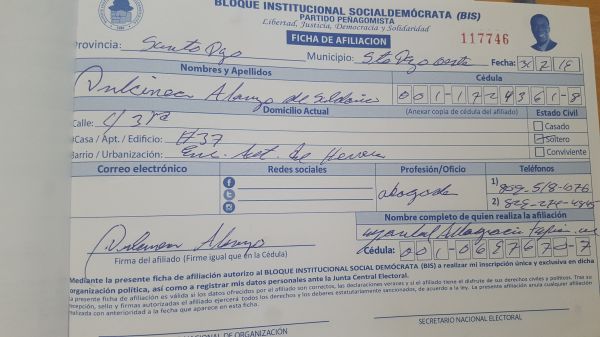 BLOQUE INSTITUCIONAL SOCIALDEMÓCRATA (BIS)
PARTIDO PEÑAGOMISTA
Libertad, Justicia, Democracia y Solidaridad
FICHA DE AFILIACION
117746
Provincia: Santo Dgo
Municipio: Sto Dgo Oeste
Fecha:
Nombres y Apellidos
Cédula
Dulcinea Alonzo de
001-1724361-8
Domicilio Actual
(Anexar copia de cédula del afiliado)
Estado Civil
Calle: C/ 3ra
Casado
#Casa / Apt. / Edificio: #37
Soltero
Barrio / Urbanización:
Conviviente
Correo electrónico
Redes sociales
Profesión/Oficio
Teléfonos
abogada
1)
2)
Nombre completo de quien realiza la afiliación
Dulcinea Alonzo
Firma del afiliado (Firme igual que en la Cédula)
Cédula: 001-0697670-7
Mediante la presente ficha de afiliación autorizo al BLOQUE INSTITUCIONAL SOCIALDEMÓCRATA (BIS) a realizar mi inscripción única y exclusiva en dicha
organización política, así como a registrar mis datos personales ante la Junta Central Electoral.
La presente ficha de afiliación es válida si los datos ofrecidos por el afiliado son correctos, las declaraciones veraces y si el afiliado tiene el disfrute de sus derechos civiles y políticos. Tras su
recepción, sello y firmas autorizadas el afiliado ejercerá todos los derechos y los deberes estatutariamente sancionados, de acuerdo a la ley. La presente afiliación anula cualquier afiliación
realizada con anterioridad a la fecha que aparece en esta ficha.
NACIONAL DE ORGANIZACIÓN
SECRETARIO NACIONAL ELECTORAL